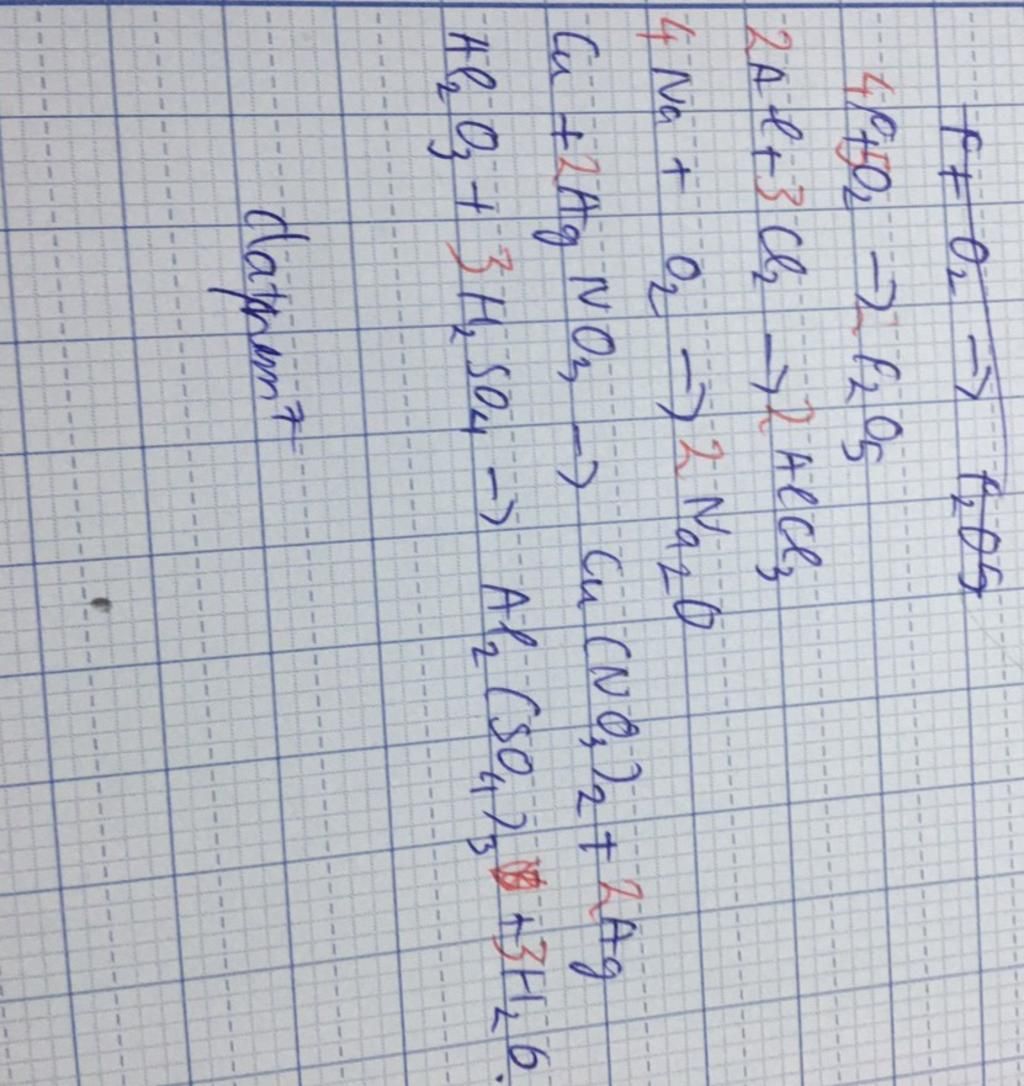 P + O₂ → P₂O5
4P+5O₂ → 2P₂O5
2Al + 3Cl₂ → 2AlCl₃
4Na + O₂ → 2Na₂O
Cu + 2AgNO₃ → Cu(NO₃)₂ + 2Ag
Al₂O₃ + 3H₂SO₄ → Al₂(SO₄)₃ + 3H₂O.